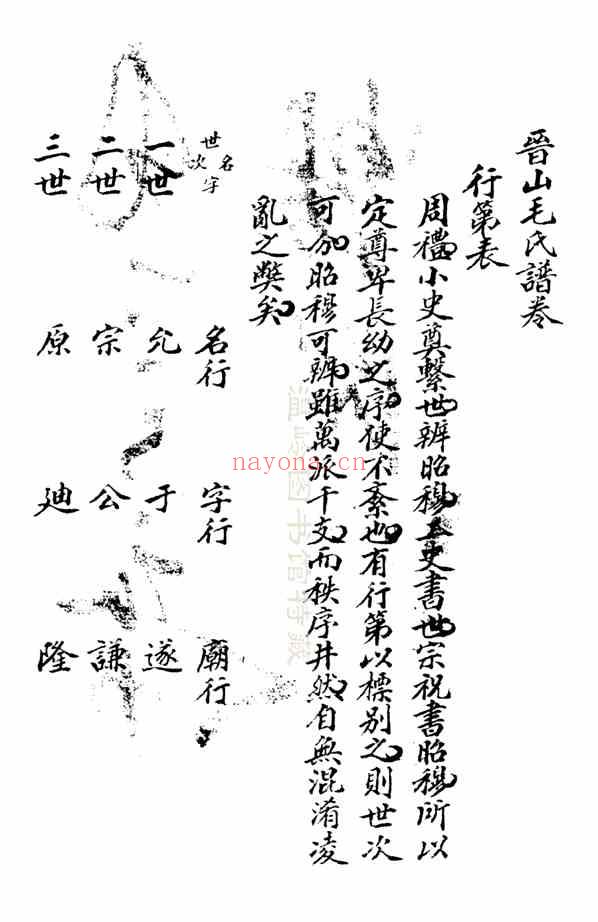 晉山毛氏譜卷
行第表
周禮小史奠繫世辨昭穆工史書世宗祝書昭穆所以
定尊卑長幼之序使不紊也有行第以標別之則世次
可分昭穆可辨雖萬派千支而秩序井然自無混淆凌
亂之弊矣
世次 名字 名行 字行 廟行
一世 允 于 遂
二世 宗 公 謙
三世 原 廸 隆
nayona.cn
温岭图书馆特藏